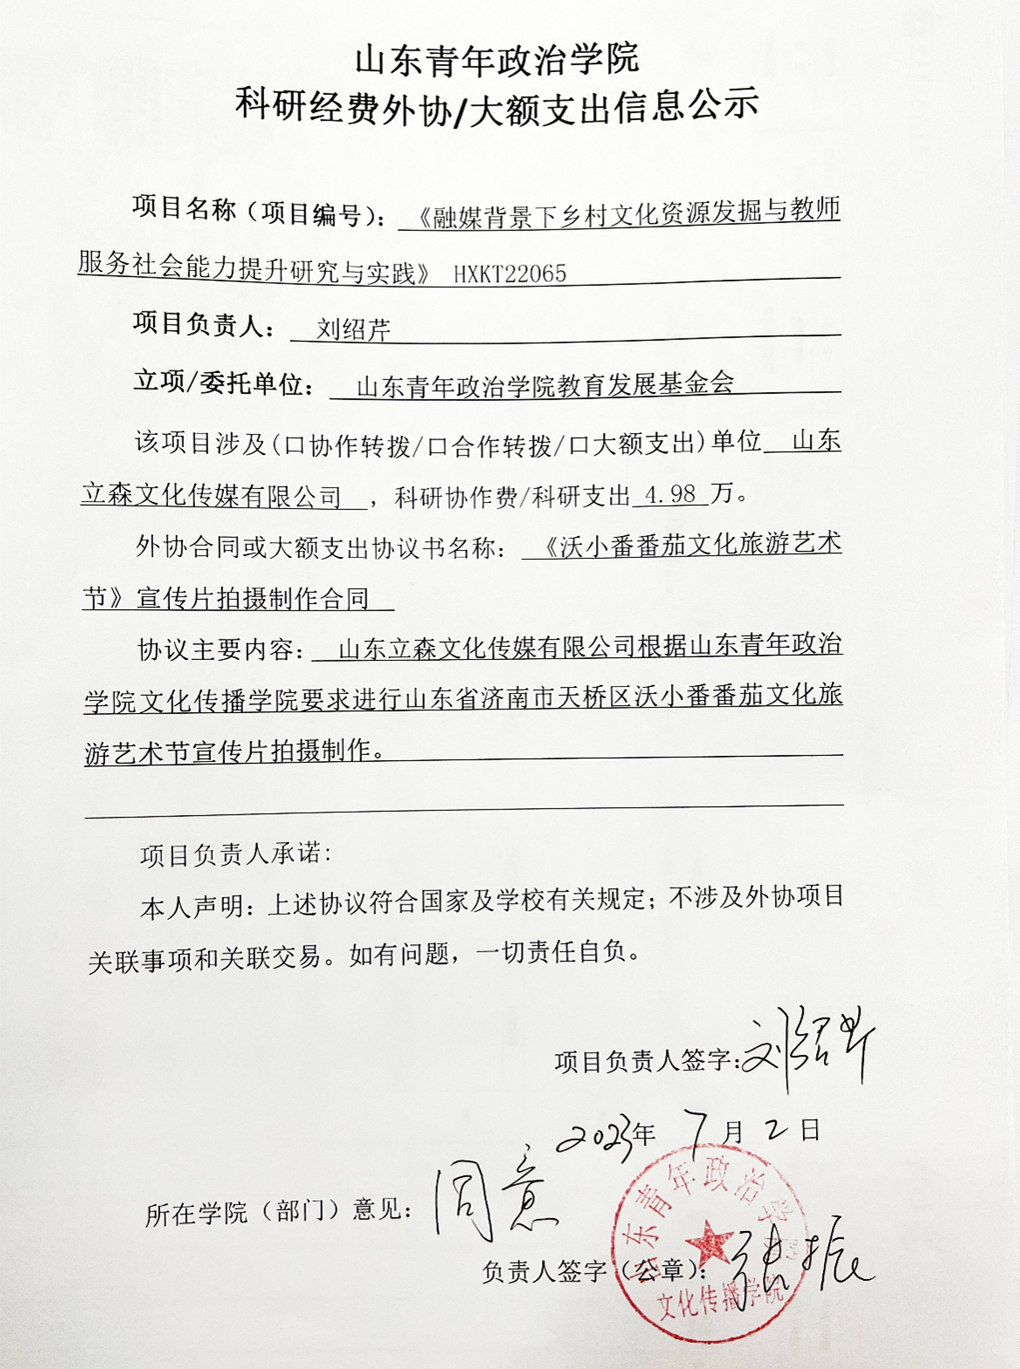 山东青年政治学院
科研经费外协/大额支出信息公示
项目名称（项目编号）： 《融媒背景下乡村文化资源发掘与教师
服务社会能力提升研究与实践》 HXKT22065
项目负责人： 刘绍芹
立项/委托单位： 山东青年政治学院教育发展基金会
该项目涉及(口协作转拨/口合作转拨/口大额支出)单位 山东
立森文化传媒有限公司 ，科研协作费/科研支出 4.98 万。
外协合同或大额支出协议书名称： 《沃小番番茄文化旅游艺术
节》宣传片拍摄制作合同
协议主要内容： 山东立森文化传媒有限公司根据山东青年政治
学院文化传播学院要求进行山东省济南市天桥区沃小番番茄文化旅
游艺术节宣传片拍摄制作。
项目负责人承诺：
本人声明：上述协议符合国家及学校有关规定；不涉及外协项目
关联事项和关联交易。如有问题，一切责任自负。
项目负责人签字：刘绍芹
2023年 7 月 2 日
所在学院（部门）意见： 同意
负责人签字（公章）： 张振
山东青年政治学院
文化传播学院